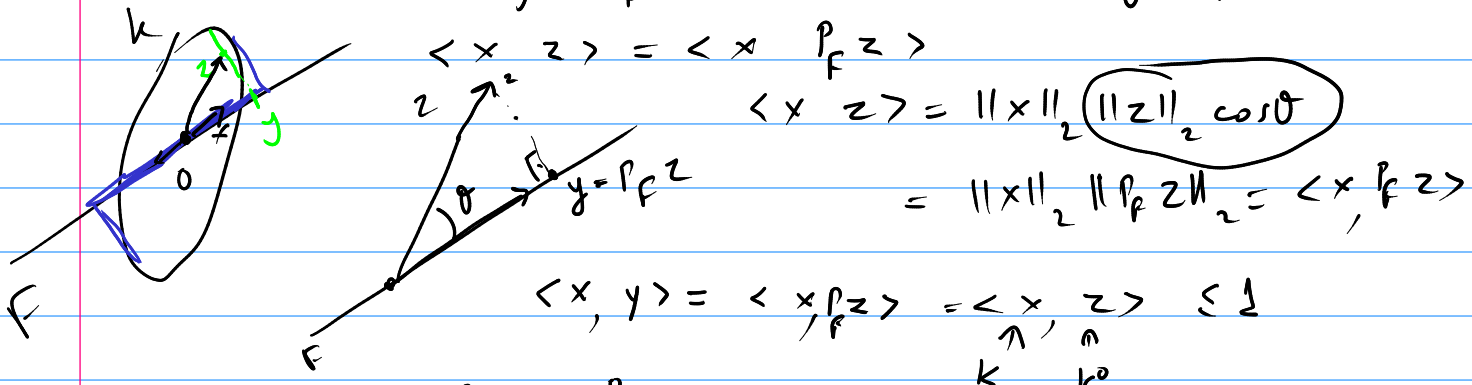 k
< x z > = < x P_F z >
z
x
y
0
F
z
z
θ
y = P_F z
F
< x z > = ||x||_2 ||z||_2 cosθ
= ||x||_2 ||P_F z||_2 = < x, P_F z >
< x, y > = < x, P_F z > = < x, z > ≤ 1
k k°